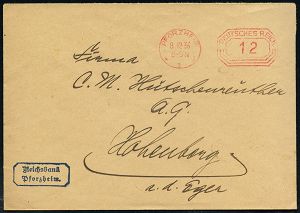 PFORZHEIM
8.10.36
DEUTSCHES REICH
12
Firma
C. M. Hutschenreuther
A. G.
Hohenberg
a. d. Eger
Reichsbank
Pforzheim.